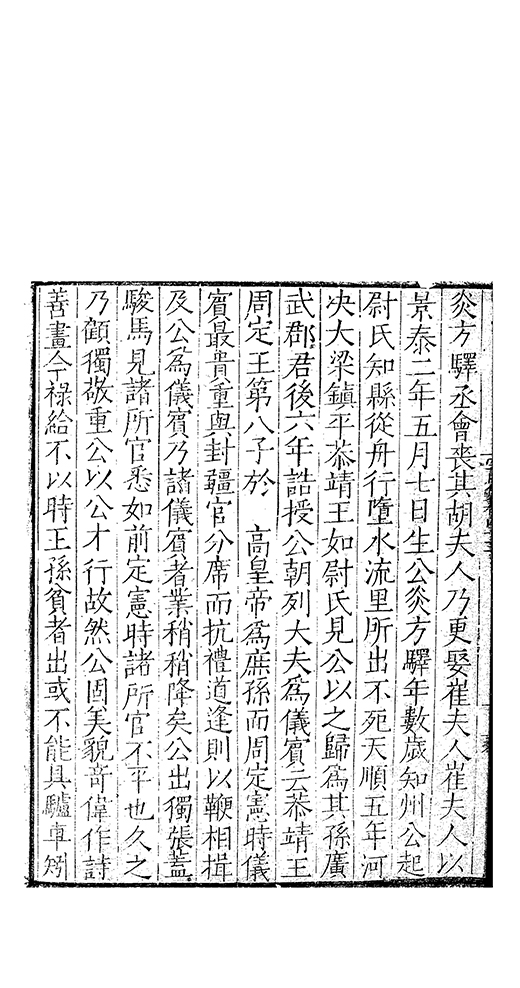 炎方驛丞會喪其胡夫人乃更娶崔夫人崔夫人以
景泰二年五月七日生公炎方驛年數歲知州公起
尉氏知縣從舟行墮水流里所出不死天順五年河
決大梁鎮平恭靖王如尉氏見公以之歸爲其孫廣
武郡君後六年誥授公朝列大夫爲儀賓云恭靖王
周定王第八子於　高皇帝爲庶孫而周定憲時儀
賓最貴重與封疆官分席而抗禮道逢則以鞭相揖
及公爲儀賓乃諸儀賓者業稍稍降矣公出獨張蓋
駿馬見諸所官悉如前定憲時諸所官不平也久之
乃顧獨敬重公以公才行故然公固美貌奇偉作詩
善畫今祿給不以時王孫貧者出或不能具驢車矧